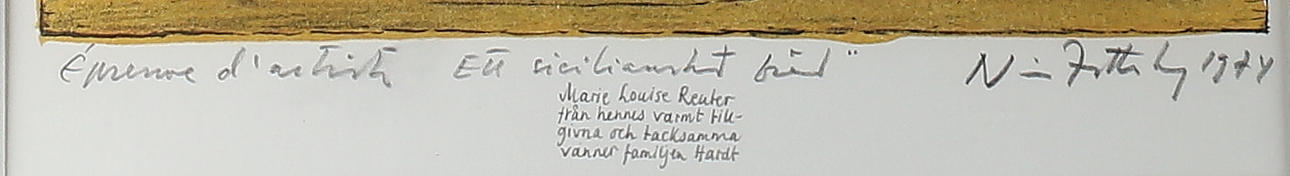 Épreuve d'artiste Ett sicilianskt bord" 1974
Marie Louise Reuter
från hennes varmt till-
givna och tacksamma
vänner familjen Hardt